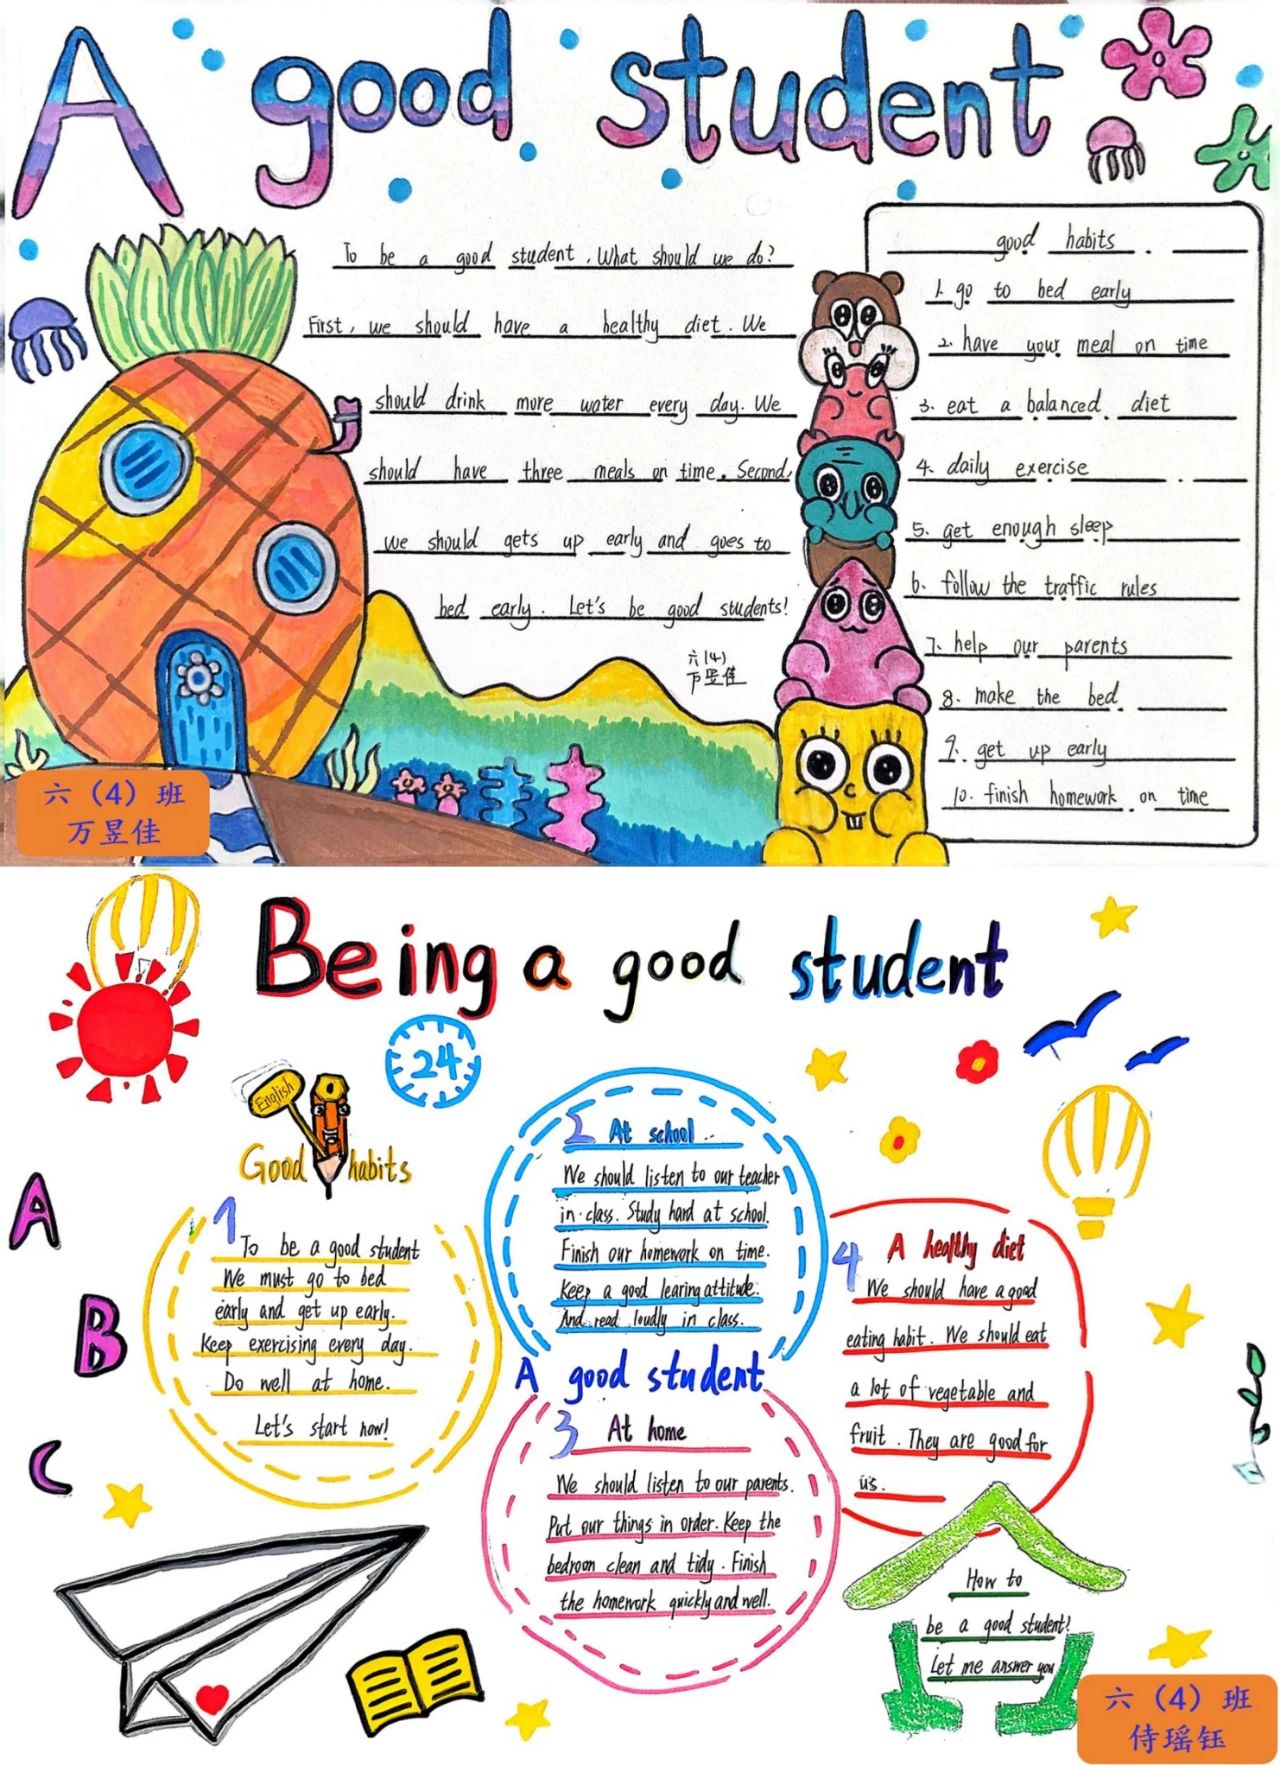 A good student
To be a good student, What should we do?
First, we should have a healthy diet. We
should drink more water every day. We
should have three meals on time. Second,
we should gets up early and goes to
bed early. Let's be good students!
六(4)
万昱佳
good habits.
1. go to bed early
2. have your meal on time
3. eat a balanced diet
4. daily exercise
5. get enough sleep
6. follow the traffic rules
7. help our parents
8. make the bed.
9. get up early
10. finish homework on time
六（4）班
万昱佳
Being a good student
24
English
Good habits
A
B
C
1
To be a good student
We must go to bed
early and get up early.
Keep exercising every day.
Do well at home.
Let's start now!
2 At school
We should listen to our teacher
in class. Study hard at school.
Finish our homework on time.
Keep a good learing attitude.
And read loudly in class.
A good student
3 At home
We should listen to our parents.
Put our things in order. Keep the
bedroom clean and tidy. Finish
the homework quickly and well.
4 A healthy diet
We should have a good
eating habit. We should eat
a lot of vegetable and
fruit. They are good for
us.
How to
be a good student!
Let me answer you
六（4）班
侍瑶钰